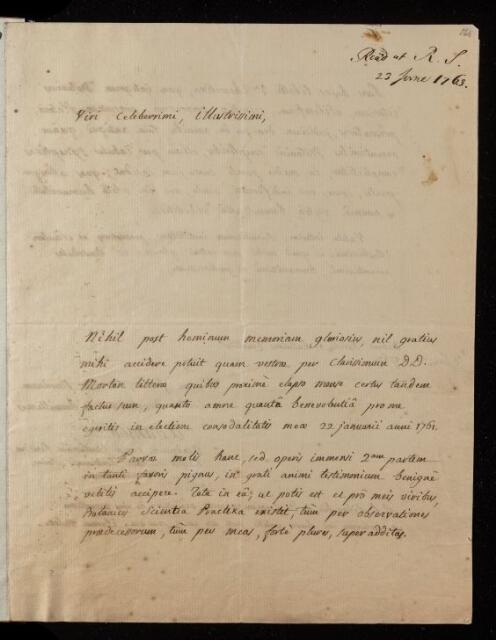 Read at R. S.
23 June 1763.
Viri Celeberrimi, illustrissimi,
Nihil post hominum memoriam gloriosius, nil gratius
mihi accidere potuit quam vestrae per clarissimum D.D.
Morton litterae quibus proximè elapso mense certus tandem
factus sum, quanto amore quantâ benevolentiâ pro me
egeritis in electione consodalitatis meae 22 januarii anni 1761.
Parvae molis hanc, sed operis immensi 2am partem
in tanti favoris pignus, in grati animi testimonium benignè
velitis accipere. Tota in eâ, ut potis est et prò meis viribus,
Botanices Scientia Practica existet, tùm per observationes
praedecessorum, tùm per meas, fortè plures, super additas.